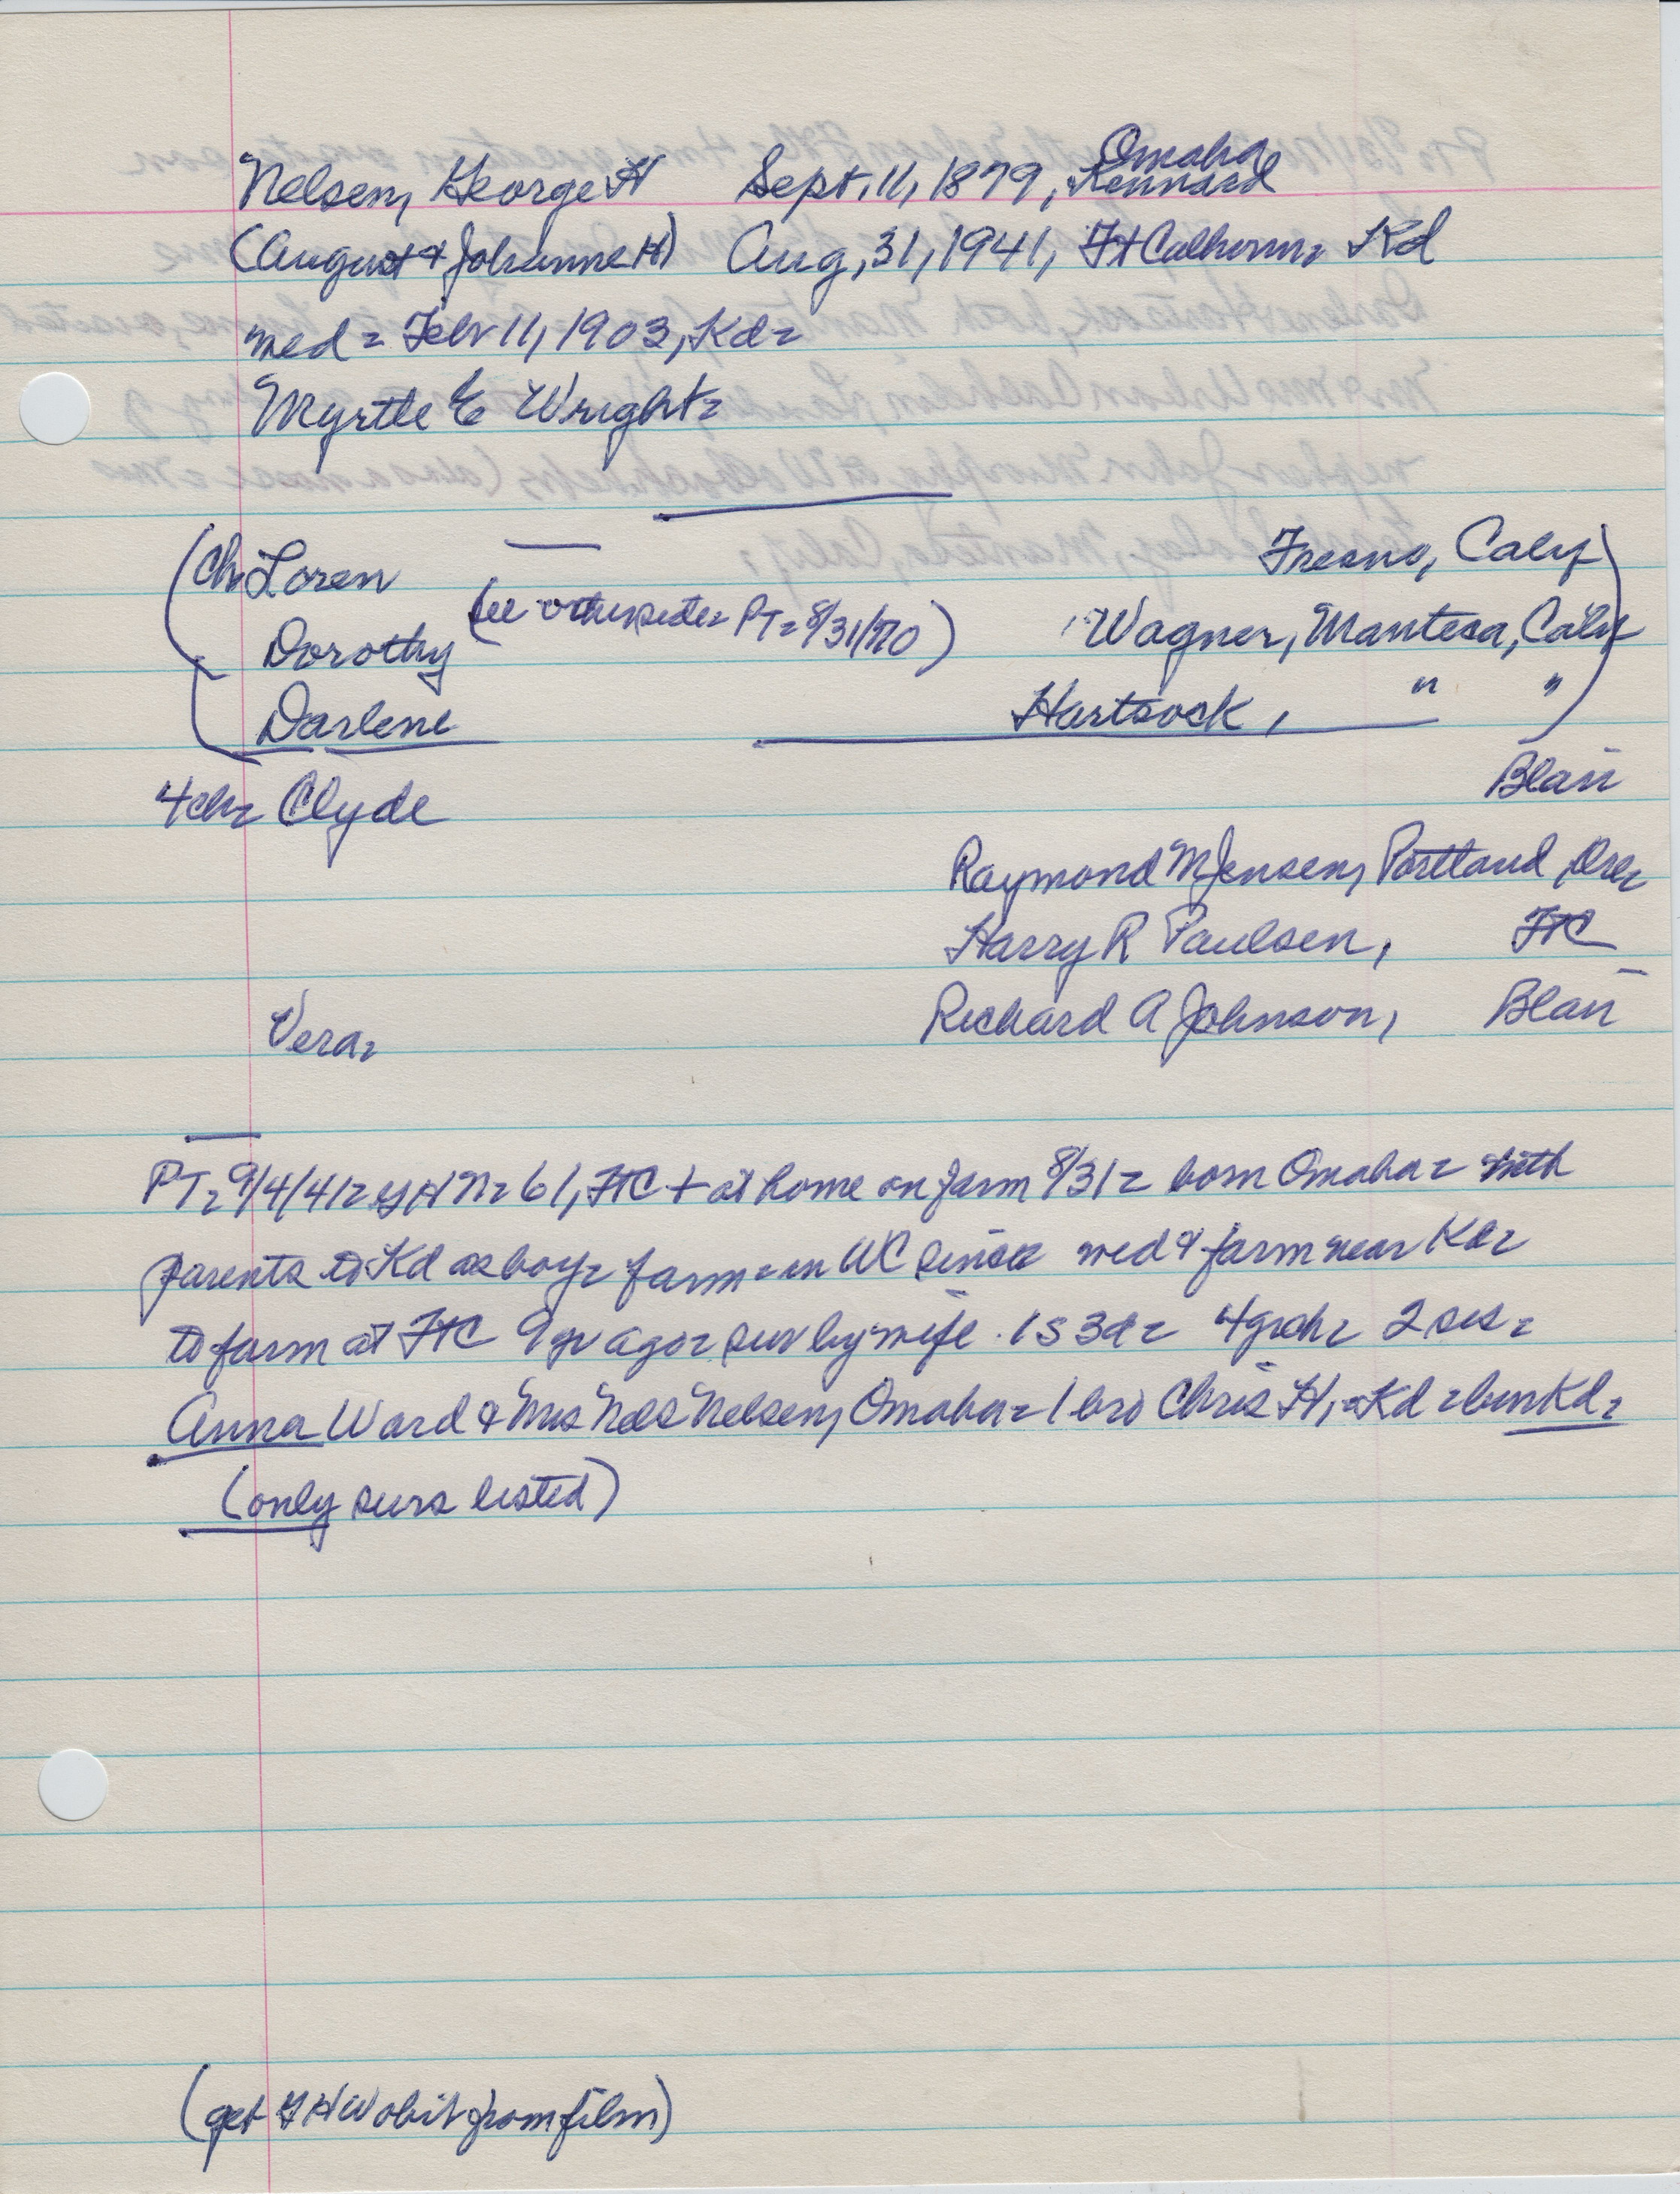 Omaha
Nelsen, George H Sept, 11, 1879, Kennard
(August & Johanne H) Aug, 31, 1941, Ft Calhoun, Kd
med = Febr 11, 1903, Kd =
Myrtle E Wright =
(Ch Loren Fresno, Calif
Dorothy (see other side = PT = 8/31/70) Wagner, Manteca, Calif
Darlene Hartsock, " ")
4 ch = Clyde Blair
Raymond M Jensen, Portland, Ore
Harry R Paulsen, FtC
Vera, Richard A Johnson, Blair
PT = 9/4/41 = G H N = 61, FtC + at home on farm 8/31 = born Omaha = with
parents to Kd as boy = farm = in WC since med & farm near Kd =
to farm at FtC 9 yr ago = surv by wife. 1 S 3 d = 4 grch = 2 sis =
Anna Ward & Mrs Nels Nelsen, Omaha = 1 bro Chris H, = Kd = bur Kd =
(only survs listed)
(get obit from film)